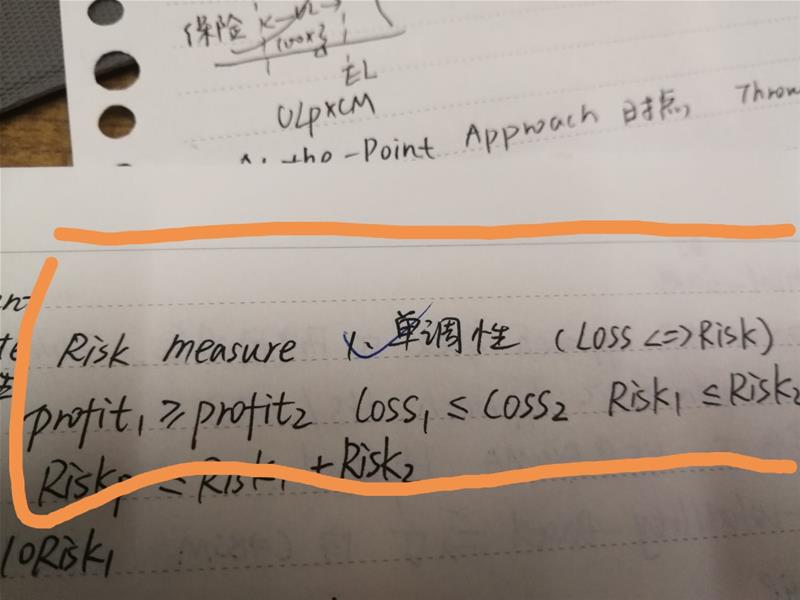 保险
100x3
EL
ULpxCM
At-the-Point Approach 时点 Throu
Risk measure 1. 单调性 (Loss <=> Risk)
profit₁ ≥ profit₂ Loss₁ ≤ Loss₂ Risk₁ ≤ Risk₂
Riskp ≤ Risk₁ + Risk₂
10Risk₁